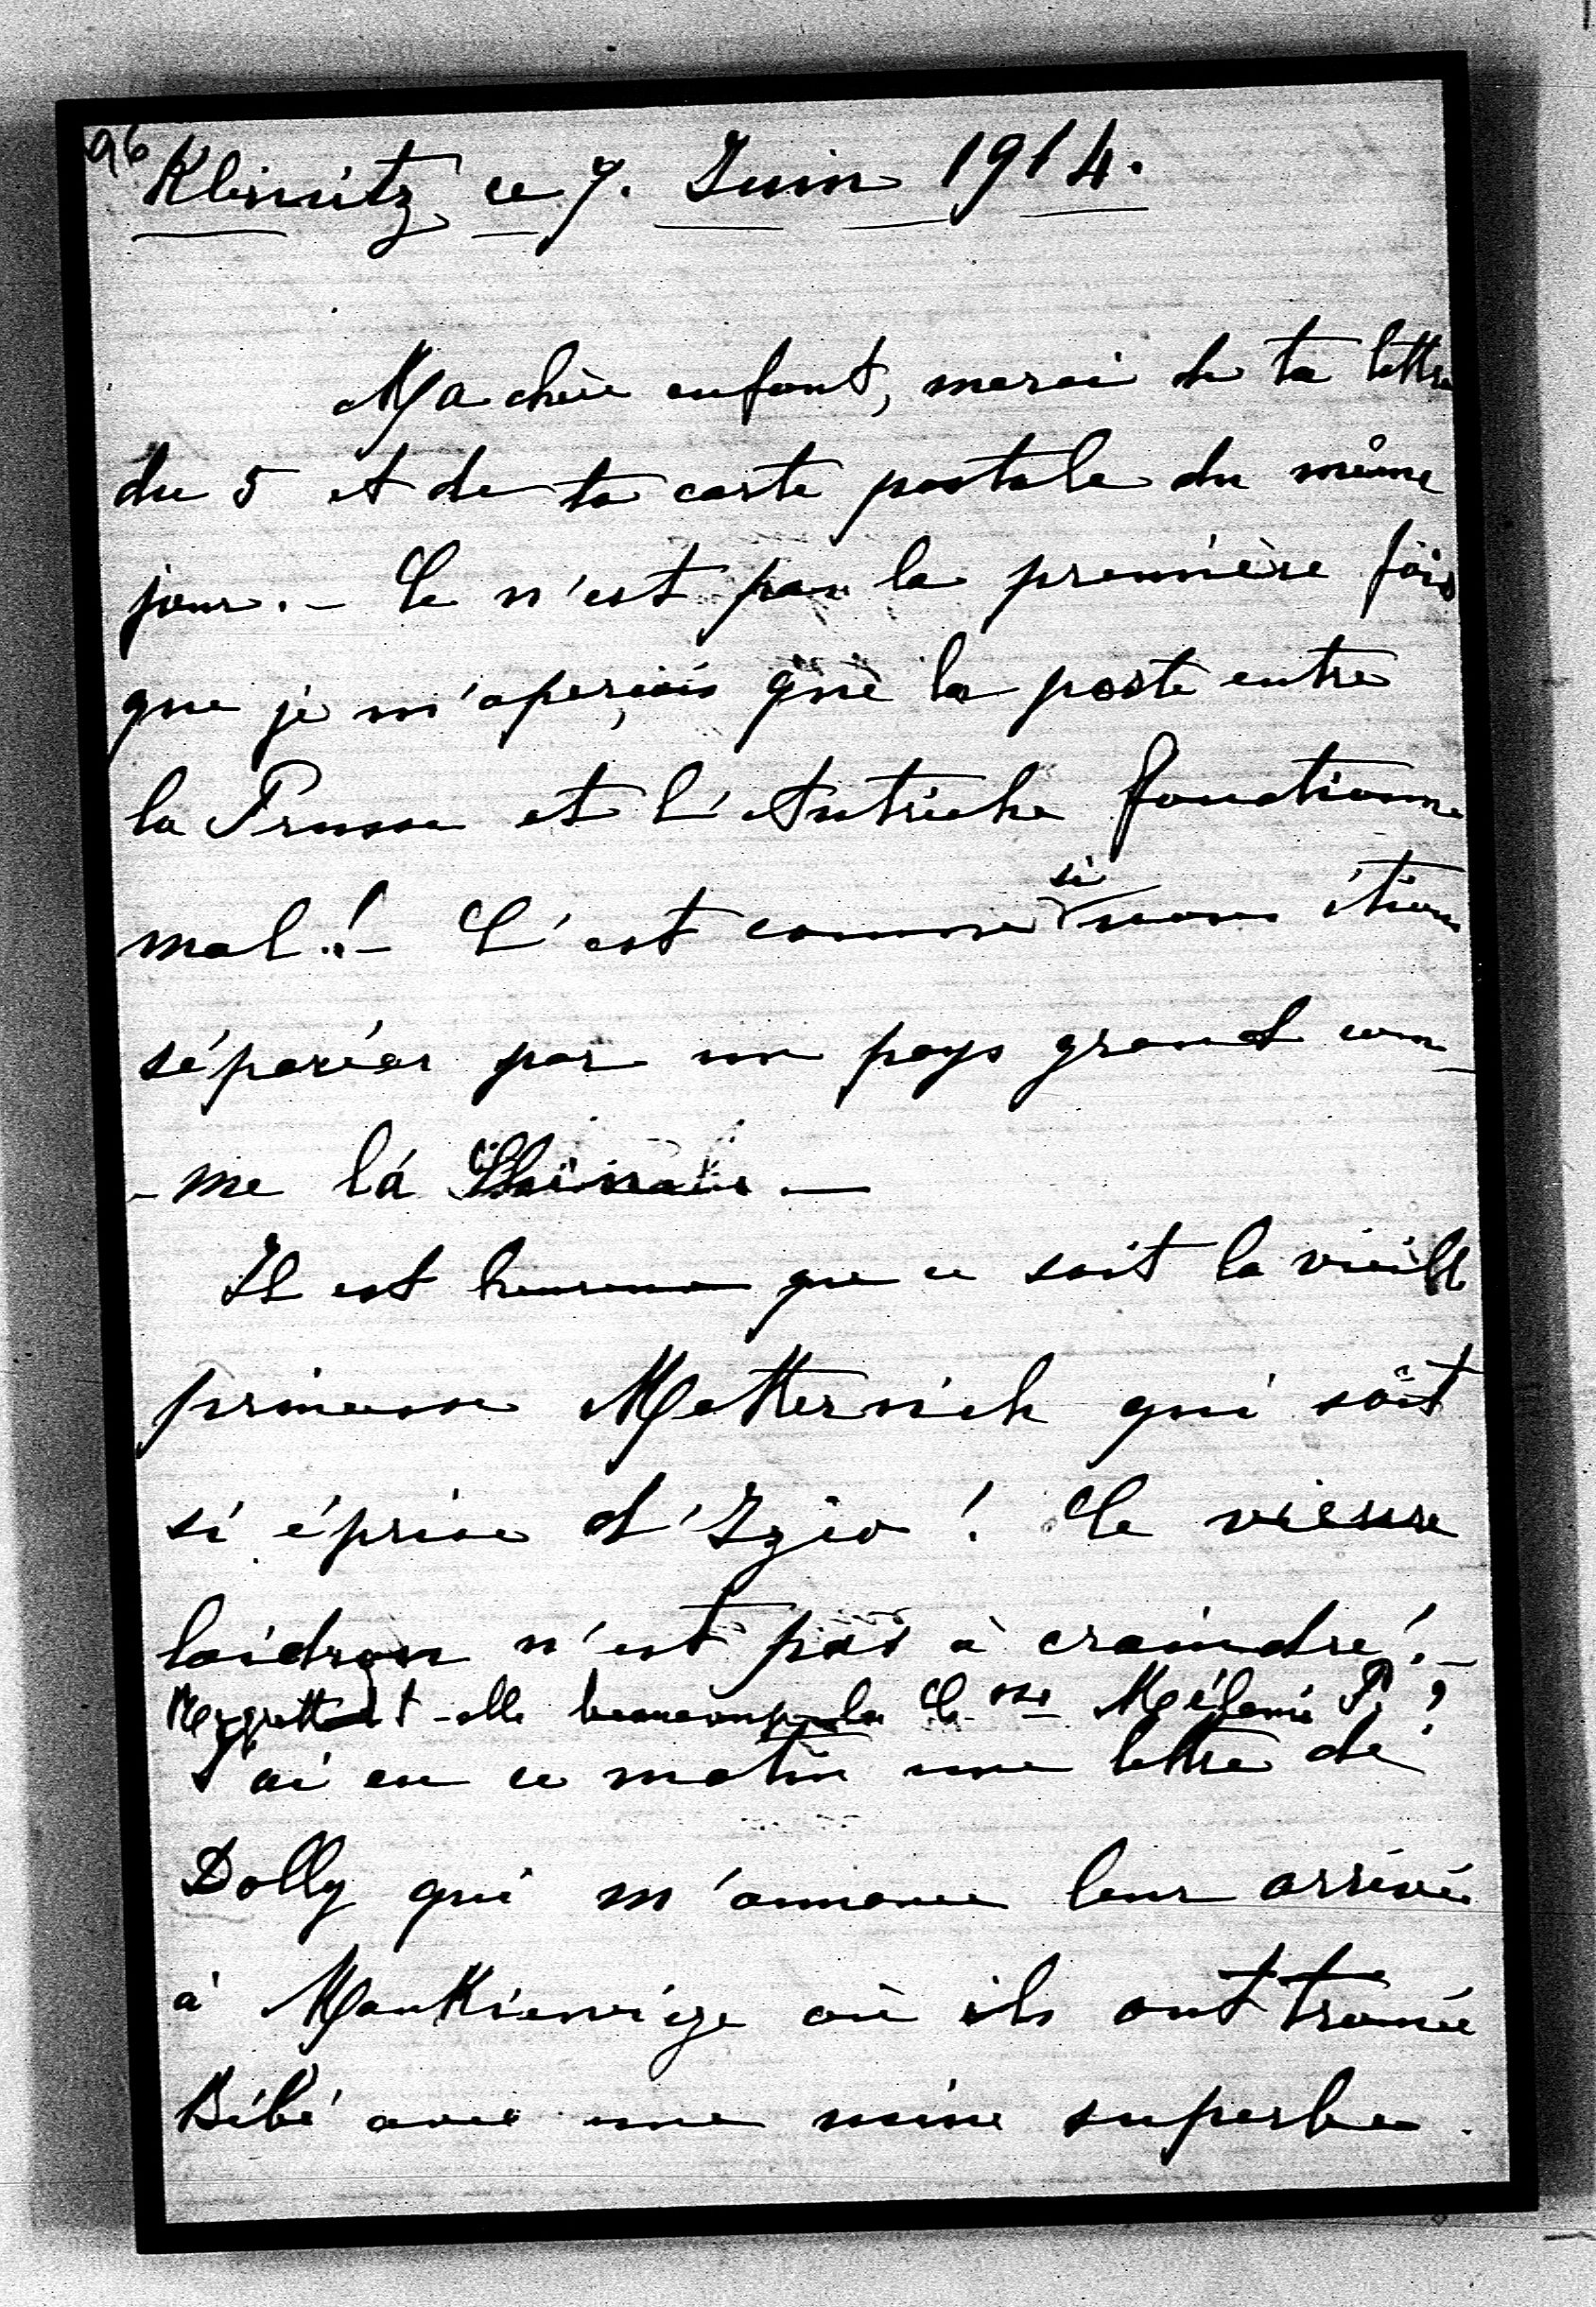 96
Klemitz ce 7. Juin 1914.
Ma chère enfant, merci de ta lettre
du 5 et de ta carte postale du même
jour. - Ce n'est pas la première fois
que je m'aperçois que la poste entre
la Prusse et l'Autriche fonctionne
mal! - C'est comme si nous étions
séparées par un pays grand com-
-me la Chine. -
Il est heureux que ce soit la vieille
princesse Metternich qui soit
si éprise d'Izio! Ce vieux
laidron n'est pas à craindre! -
Regrette-t-elle beaucoup la Csse Mélanie P.?
J'ai eu ce matin une lettre de
Dolly qui m'annonce leur arrivée
à Mankiewicze où ils ont trouvé
Bébé avec une mine superbe.